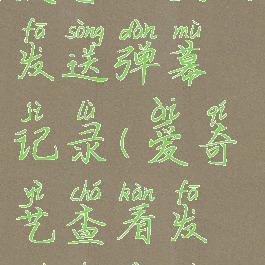 fā sòng dàn mù
发送弹幕
jì lù ài qí
记录(爱奇
yì chá kàn fā
艺查看发